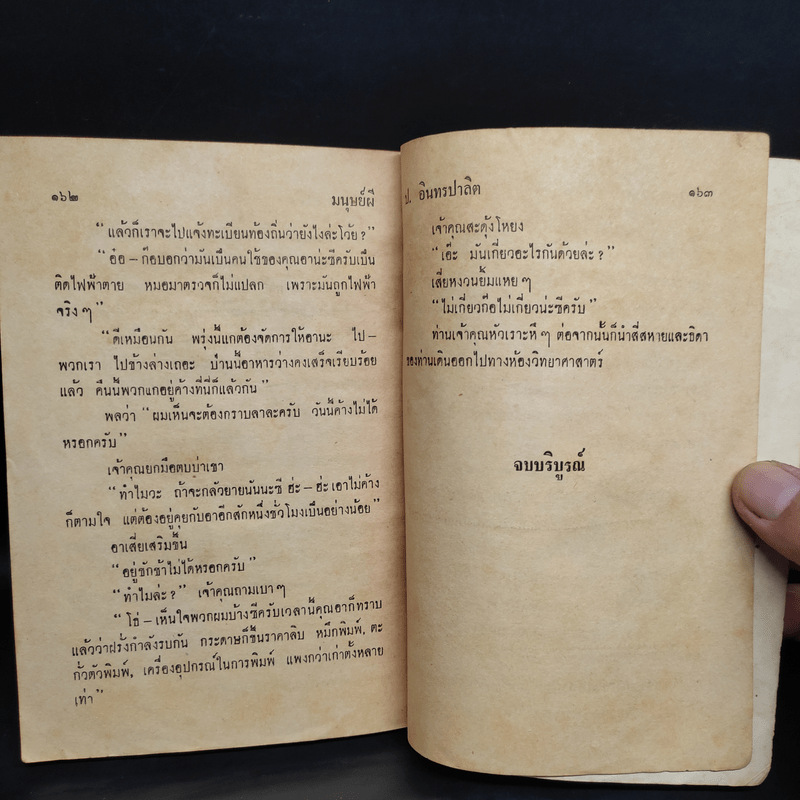 ๑๖๒
มนุษย์ผี
“แล้วก็เราจะไปแจ้งทะเบียนท้องถิ่นว่ายังไงล่ะโว้ย?”
“อ๋อ – ก้อบอกว่ามันเป็นคนใช้ของคุณอาน่ะซีครับเป็น
ติดไฟฟ้าตาย หมอมาตรวจก็ไม่แปลก เพราะมันถูกไฟฟ้า
จริงๆ”
“ดีเหมือนกัน พรุ่งนี้แกต้องจัดการให้อานะ ไป–
พวกเรา ไปข้างล่างเถอะ ป่านนี้อาหารว่างคงเสร็จเรียบร้อย
แล้ว คืนนี้พวกแกอยู่ค้างที่นี่ก็แล้วกัน”
พลว่า “ผมเห็นจะต้องกราบลาละครับ วันนี้ค้างไม่ได้
หรอกครับ”
เจ้าคุณยกมือตบบ่าเขา
“ทำไมวะ ถ้าจะกลัวยายนันนะซี ฮ่ะ–ฮ่ะ เอาไม่ค้าง
ก็ตามใจ แต่ต้องอยู่คุยกับอาอีกสักหนึ่งชั่วโมงเป็นอย่างน้อย”
อาเสี่ยเสริมขึ้น
“อยู่ชักช้าไม่ได้หรอกครับ”
“ทำไมล่ะ?” เจ้าคุณถามเบาๆ
“โธ่–เห็นใจพวกผมบ้างซีครับเวลานี้คุณอาก็ทราบ
แล้วว่าฝรั่งกำลังรบกัน กระดาษก็ขึ้นราคาลิบ หมึกพิมพ์, ตะ
กั่วตัวพิมพ์, เครื่องอุปกรณ์ในการพิมพ์ แพงกว่าเก่าตั้งหลาย
เท่า”
ป. อินทรปาลิต
๑๖๓
เจ้าคุณสะดุ้งโหยง
“เอ๊ะ มันเกี่ยวอะไรกันด้วยล่ะ?”
เสี่ยหงวนยิ้มแหยๆ
“ไม่เกี่ยวก้อไม่เกี่ยวน่ะซีครับ”
ท่านเจ้าคุณหัวเราะหึๆ ต่อจากนั้นก็นำสี่สหายและธิดา
ของท่านเดินออกไปทางห้องวิทยาศาสตร์
จบบริบูรณ์